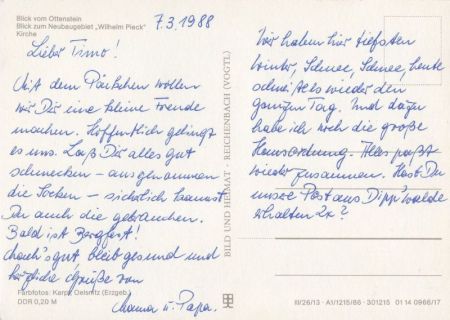 Blick vom Ottenstein
Blick zum Neubaugebiet „Wilhelm Pieck"
Kirche
7.3.1988
Lieber Timo!
Mit dem Päckchen wollen
wir Dir eine kleine Freude
machen. Hoffentlich gelingt
es uns. Laß Dir alles gut
schmecken – ausgenommen
die Socken – sicherlich kannst
Du auch die gebrauchen.
Bald ist Bergfest!
Mach's gut bleib gesund und
herzliche Grüße von
Mama u. Papa.
Farbfotos: Karpf, Oelsnitz (Erzgeb.)
DDR 0,20 M
BILD UND HEIMAT · REICHENBACH (VOGTL)
Wir haben hier tiefsten
Winter, Schnee, Schnee, heute
schneit es wieder den
ganzen Tag. Und dazu
habe ich noch die große
Hausordnung. Alles paßt
wieder zusammen. Hast Du
unsere Post aus Dipp'walde
erhalten 2x?
III/26/13 · A1/1215/86 · 301215 01 14 0966/17